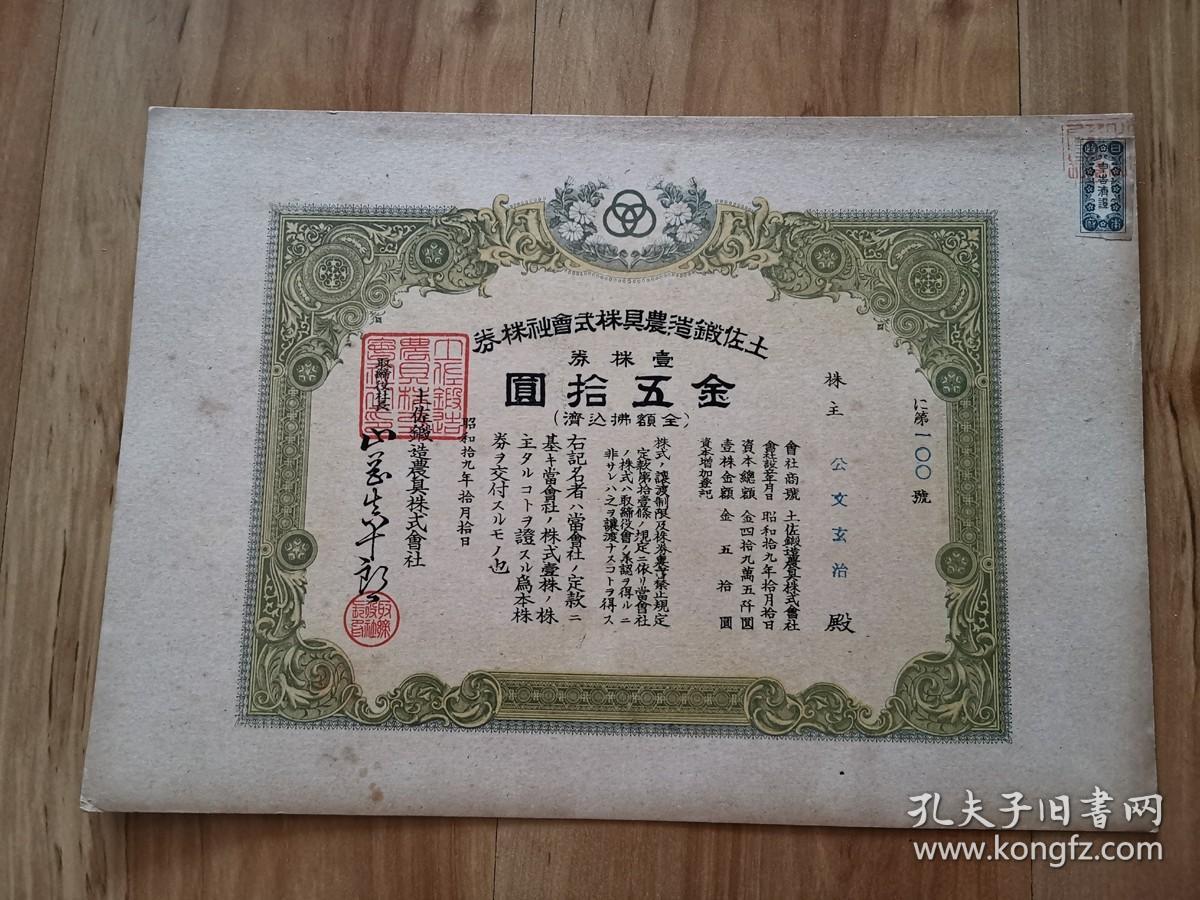 土佐鍛造農具株式會社株券
壹株券
金五拾圓
(全額拂込濟)
に第一〇〇號
株主 公文玄治 殿
會社商號 土佐鍛造農具株式會社
會社設立年月日 昭和拾九年拾月拾日
資本總額 金四拾九萬五阡圓
壹株金額 金五拾圓
資本增加登記
株式ノ讓渡制限及株券裏書禁止規定
定款第拾壹條ノ規定ニ依リ當會社
ノ株式ハ取締役會ノ承認ヲ得ルニ
非サレハ之ヲ讓渡ナスコトヲ得ス
右記名者ハ當會社ノ定款ニ
基キ當會社ノ株式壹株ノ株
主タルコトヲ證スル爲本株
券ヲ交付スルモノ也
昭和拾九年拾月拾日
土佐鍛造農具株式會社
取締役社長
孔夫子旧书网
www.kongfz.com